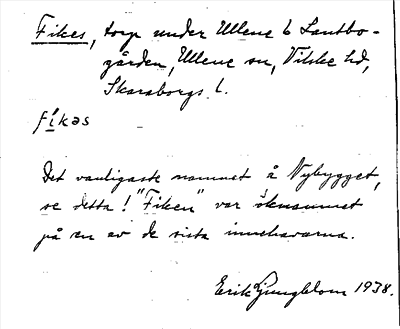 Fikes, torp under Ullene 6 Lantbo-
gården, Ullene sn, Vilske hd,
Skaraborgs l.
fíkəs
Det vanligaste namnet å Nybygget,
se detta! "Fiken" var öknamnet
på en av de sista innehavarna.
Erik Ljungblom 1938.